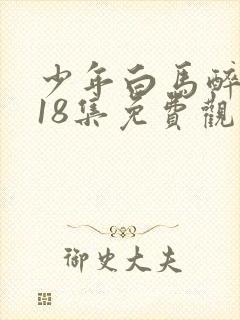 少年白馬醉
18集免費觀
御史大夫